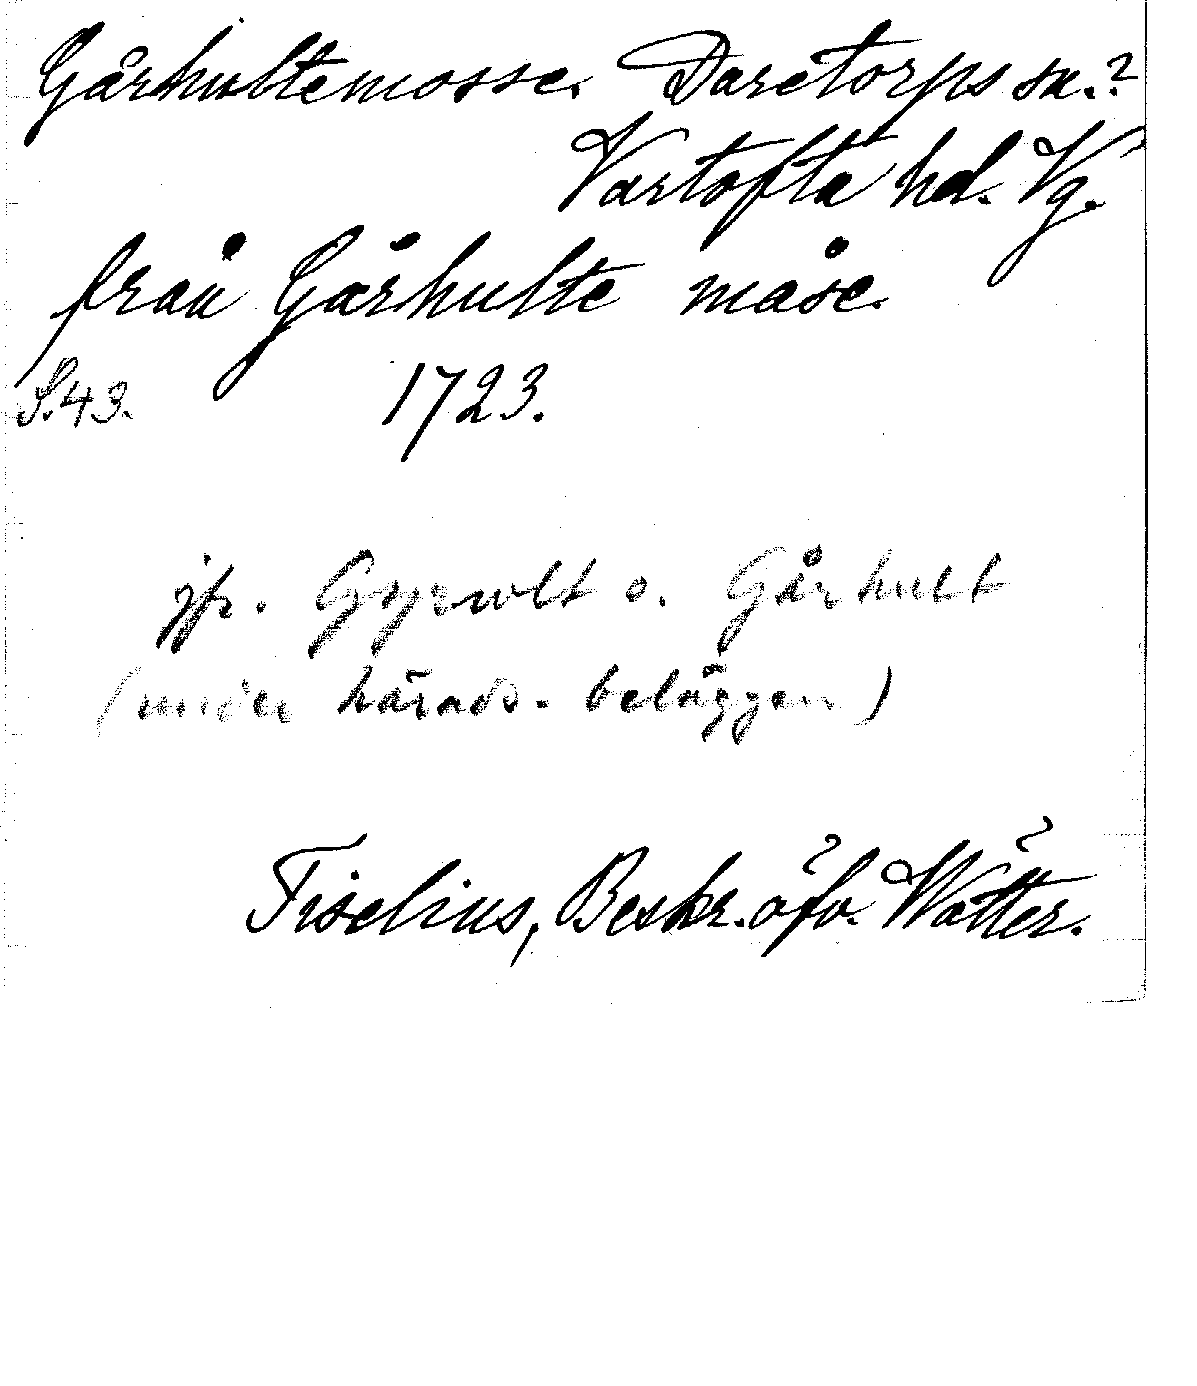 Gårhultemosse. Daretorps sn.?
Vartofta hd. Vg.
från Gårhulte måse.
S. 43. 1723.
jfr. Gyrwlt o. Gårhult
(under härads-beläggen)
Tiselius, Beskr. öfv. Wätter.